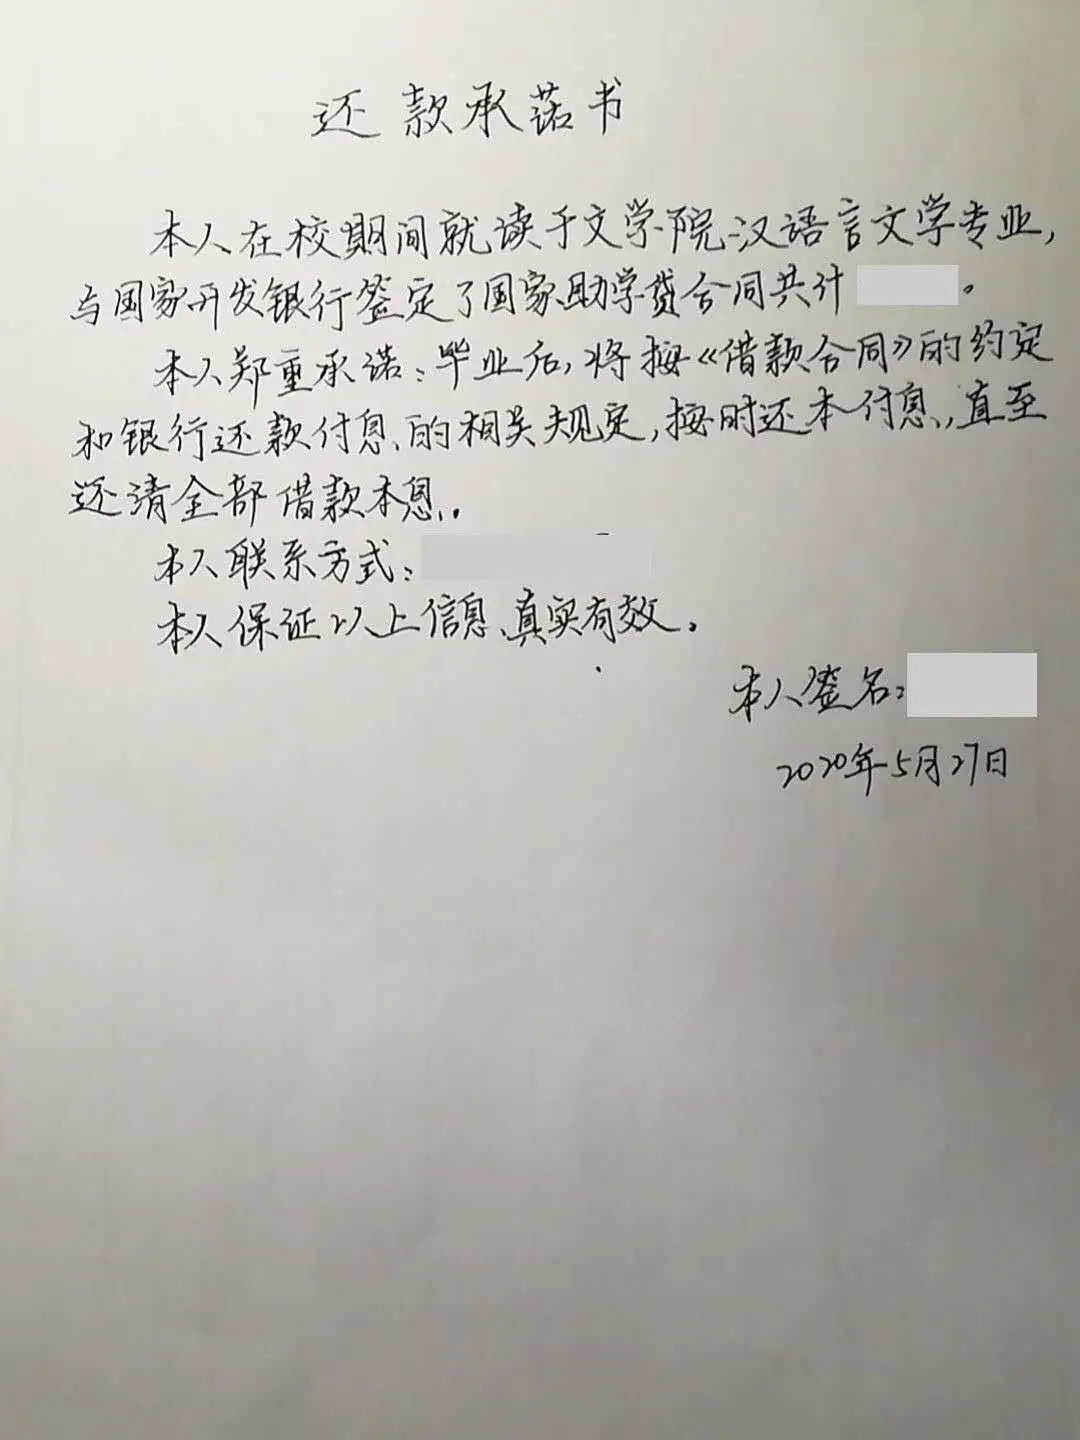 还款承诺书
本人在校期间就读于文学院汉语言文学专业,
与国家开发银行签定了国家助学贷合同共计 。
本人郑重承诺:毕业后,将按《借款合同》的约定
和银行还款付息的相关规定,按时还本付息,直至
还清全部借款本息。
本人联系方式:
本人保证以上信息真实有效。
本人签名:
2020年5月27日